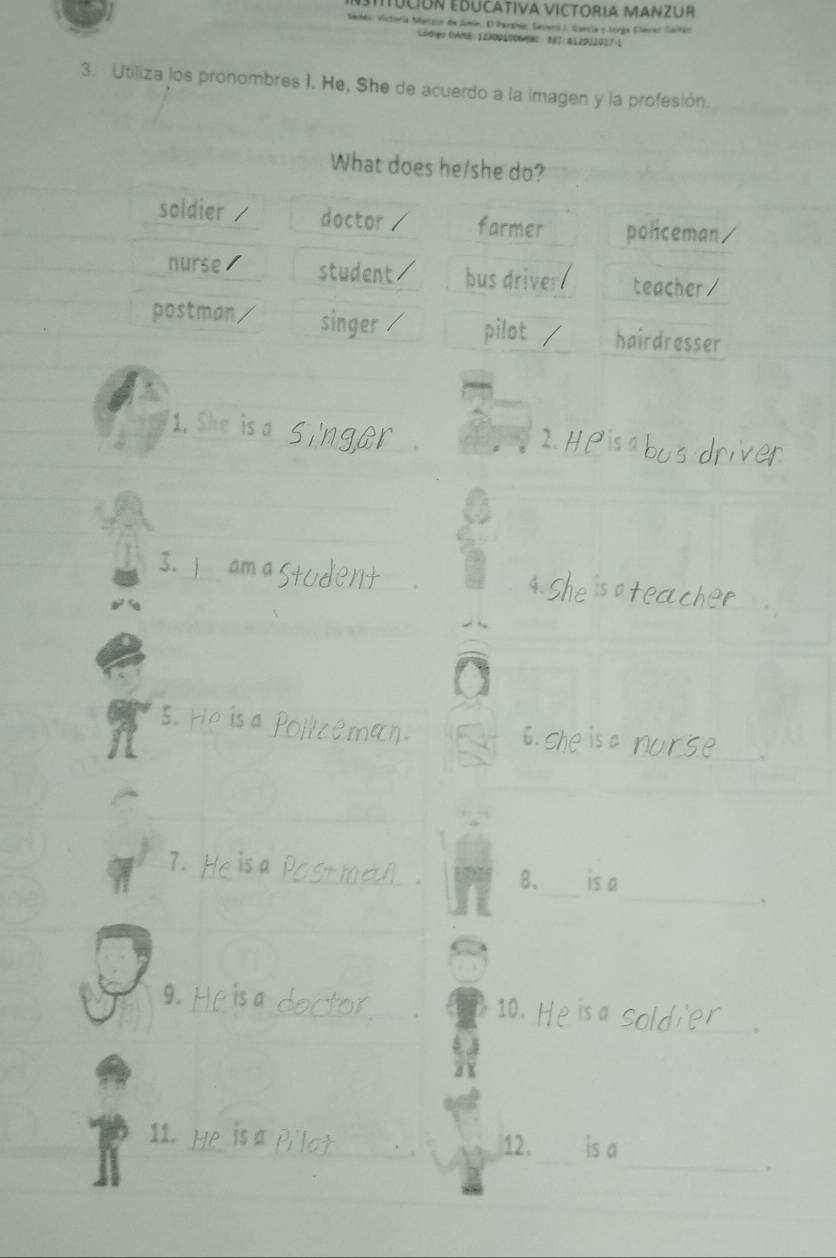 INSTITUCIÓN EDUCATIVA VICTORIA MANZUR
3. Utiliza los pronombres I, He, She de acuerdo a la imagen y la profesión.
What does he/she do?
soldier / doctor / farmer policeman /
nurse / student / bus driver / teacher /
postman / singer / pilot / hairdresser
1. She is a singer.
2. He is a bus driver.
3. I am a student.
4. She is a teacher.
5. He is a Policeman.
6. She is a nurse.
7. He is a Postman.
8. ____ is a ________.
9. He is a doctor.
10. He is a soldier.
11. He is a Pilot.
12. ____ is a ________.